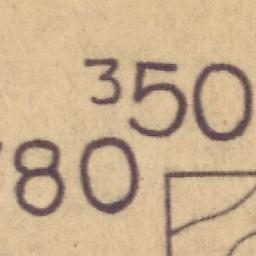 ³50
780